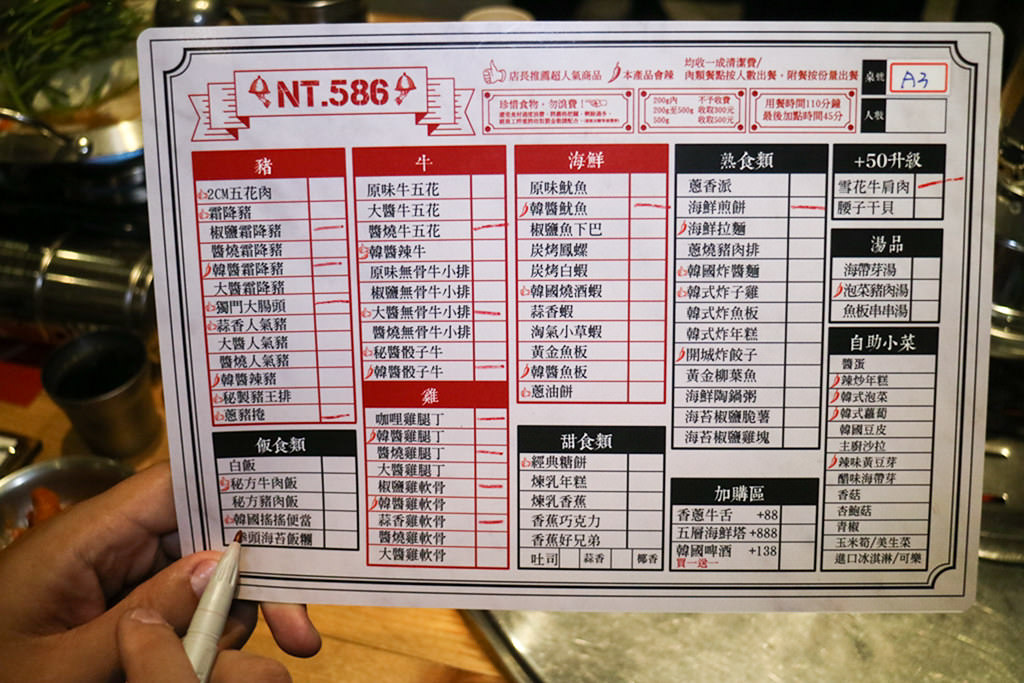 NT.586
店長推薦超人氣商品
本產品會辣
均收一成清潔費/
肉類餐點按人數出餐，附餐按份量出餐
桌號 A3
人數
珍惜食物，勿浪費！
200g內 不予收費
200g至500g 收取300元
500g 收取500元
用餐時間110分鐘
最後加點時間45分
豬
2CM五花肉
霜降豬
椒鹽霜降豬
醬燒霜降豬
韓醬霜降豬
大醬霜降豬
獨門大腸頭
蒜香人氣豬
大醬人氣豬
醬燒人氣豬
韓醬辣豬
秘製豬王排
蔥豬捲
飯食類
白飯
秘方牛肉飯
秘方豬肉飯
韓國搖搖便當
拳頭海苔飯糰
牛
原味牛五花
大醬牛五花
醬燒牛五花
韓醬辣牛
原味無骨牛小排
椒鹽無骨牛小排
大醬無骨牛小排
醬燒無骨牛小排
秘醬骰子牛
韓醬骰子牛
雞
咖哩雞腿丁
韓醬雞腿丁
醬燒雞腿丁
大醬雞腿丁
椒鹽雞軟骨
韓醬雞軟骨
蒜香雞軟骨
醬燒雞軟骨
大醬雞軟骨
海鮮
原味魷魚
韓醬魷魚
椒鹽魚下巴
炭烤鳳螺
炭烤白蝦
韓國燒酒蝦
蒜香蝦
淘氣小草蝦
黃金魚板
韓醬魚板
蔥油餅
甜食類
經典糖餅
煉乳年糕
煉乳香蕉
香蕉巧克力
香蕉好兄弟
吐司 蒜香 椰香
熟食類
蔥香派
海鮮煎餅
海鮮拉麵
蔥燒豬肉排
韓國炸醬麵
韓式炸子雞
韓式炸魚板
韓式炸年糕
開城炸餃子
黃金柳葉魚
海鮮陶鍋粥
海苔椒鹽脆薯
海苔椒鹽雞塊
加購區
香蔥牛舌 +88
五層海鮮塔 +888
韓國啤酒 +138
買一送一
+50升級
雪花牛肩肉
腰子干貝
湯品
海帶芽湯
泡菜豬肉湯
魚板串串湯
自助小菜
醬蛋
辣炒年糕
韓式泡菜
韓式蘿蔔
韓國豆皮
主廚沙拉
辣味黃豆芽
醋味海帶芽
香菇
杏鮑菇
青椒
玉米筍/美生菜
進口冰淇淋/可樂